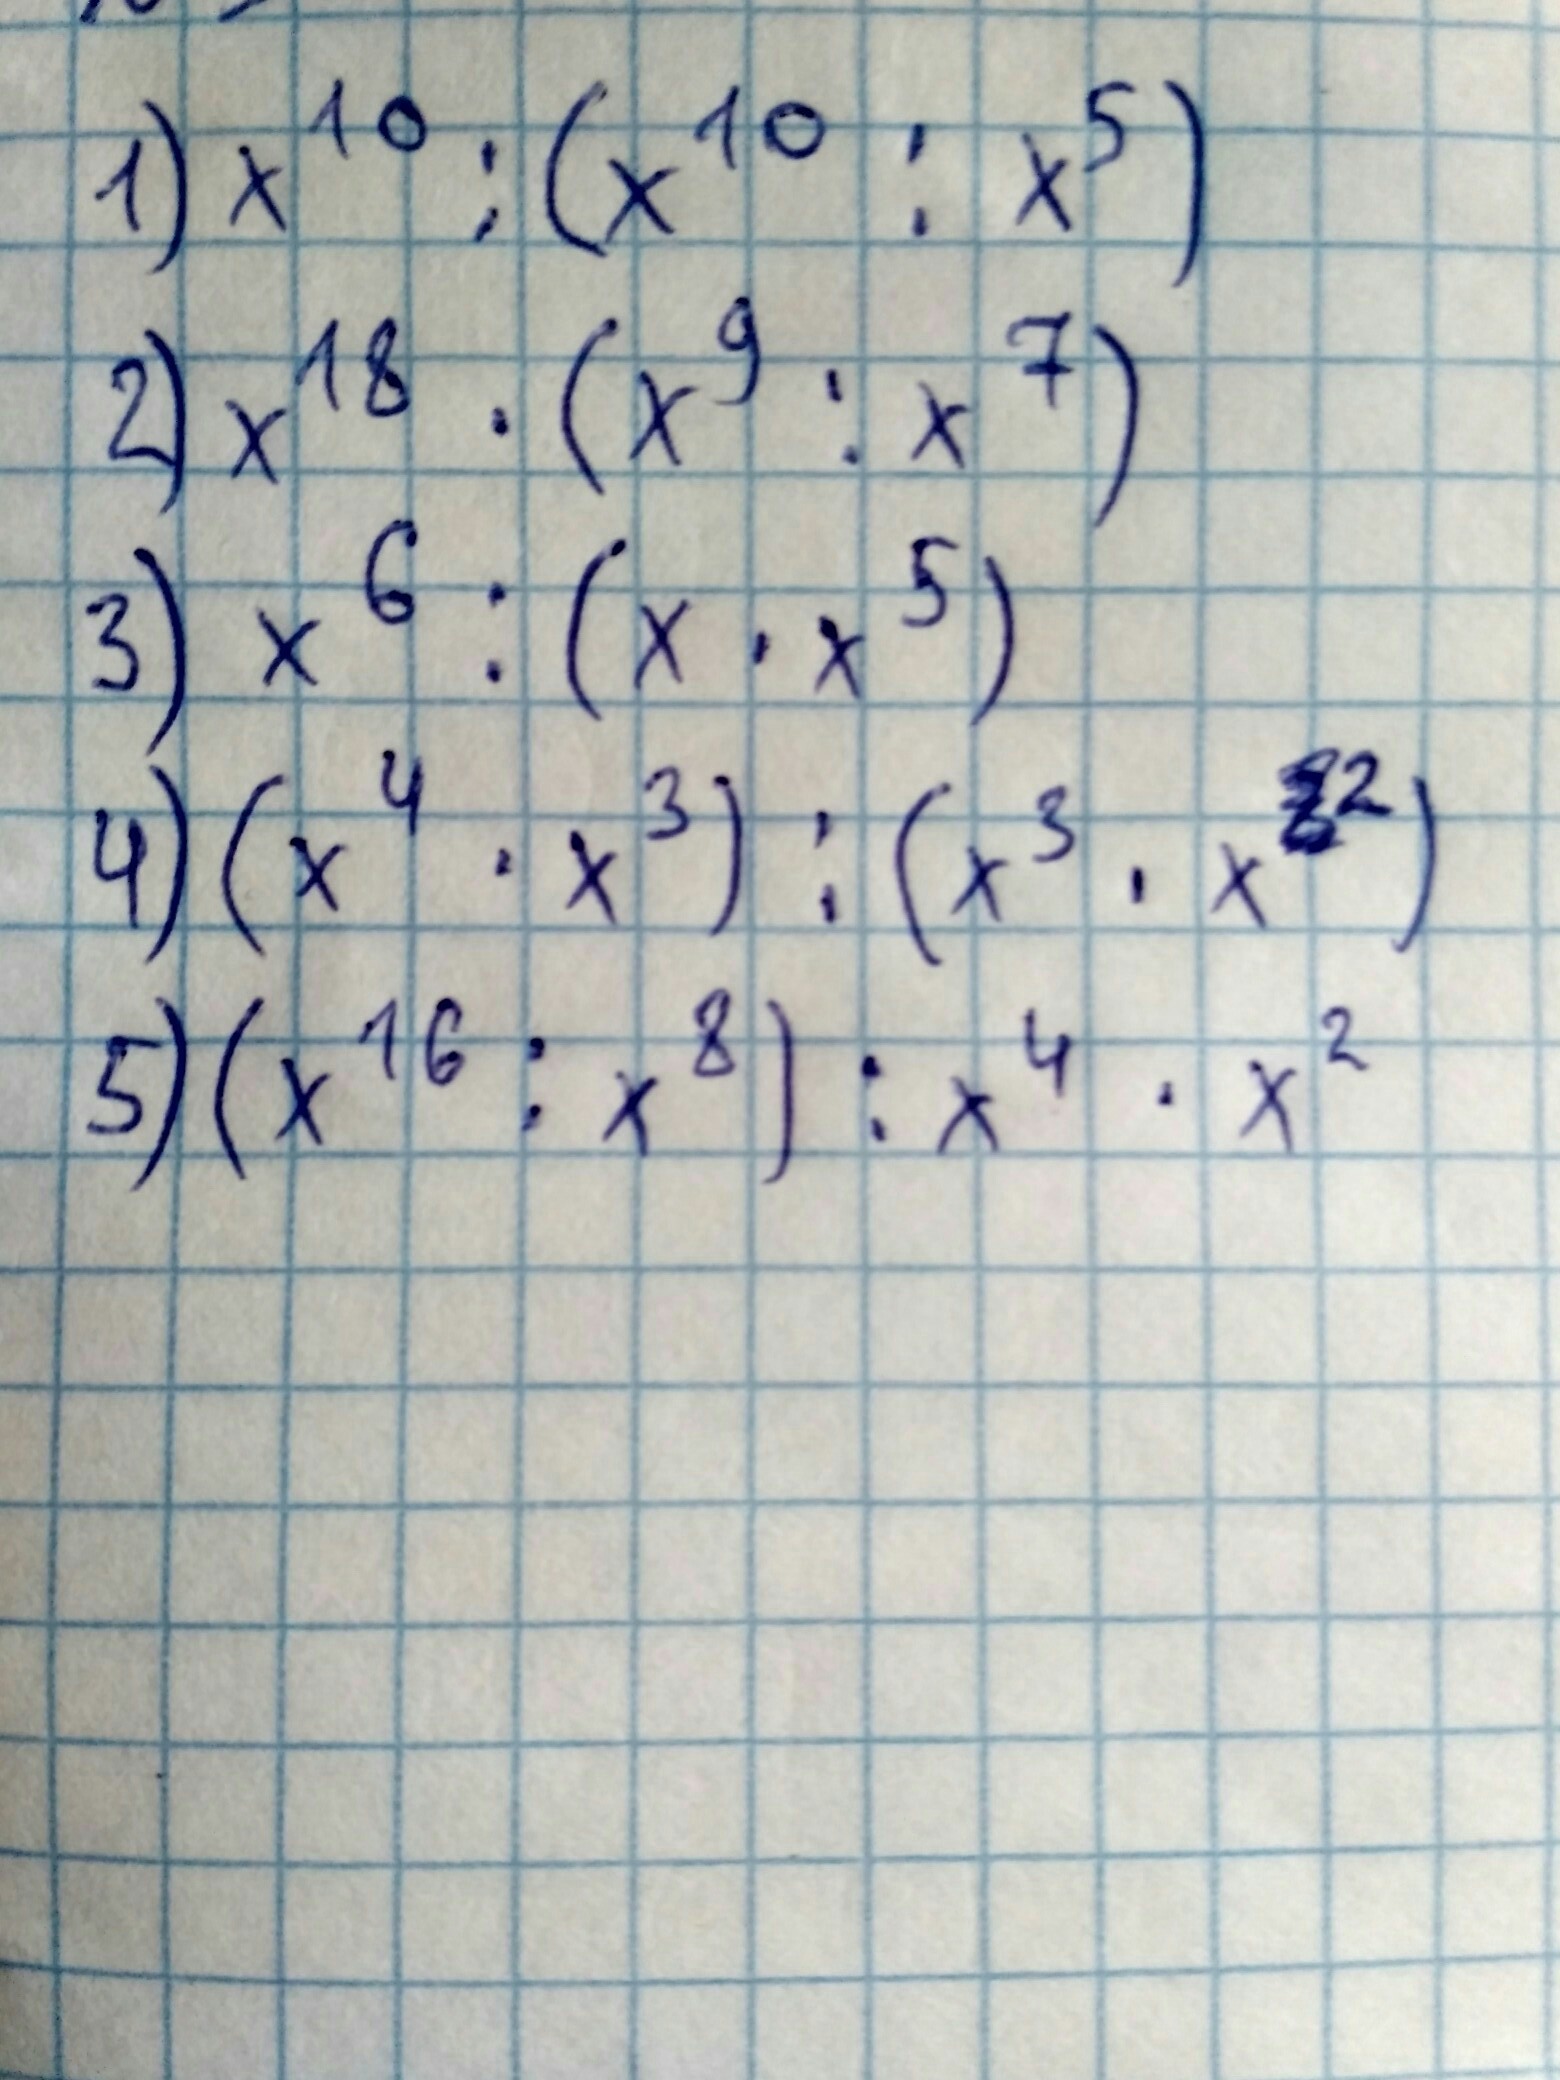 1) x^10 : (x^10 : x^5)
2) x^18 · (x^9 : x^7)
3) x^6 : (x · x^5)
4) (x^4 · x^3) : (x^3 · x^2)
5) (x^16 : x^8) : x^4 · x^2